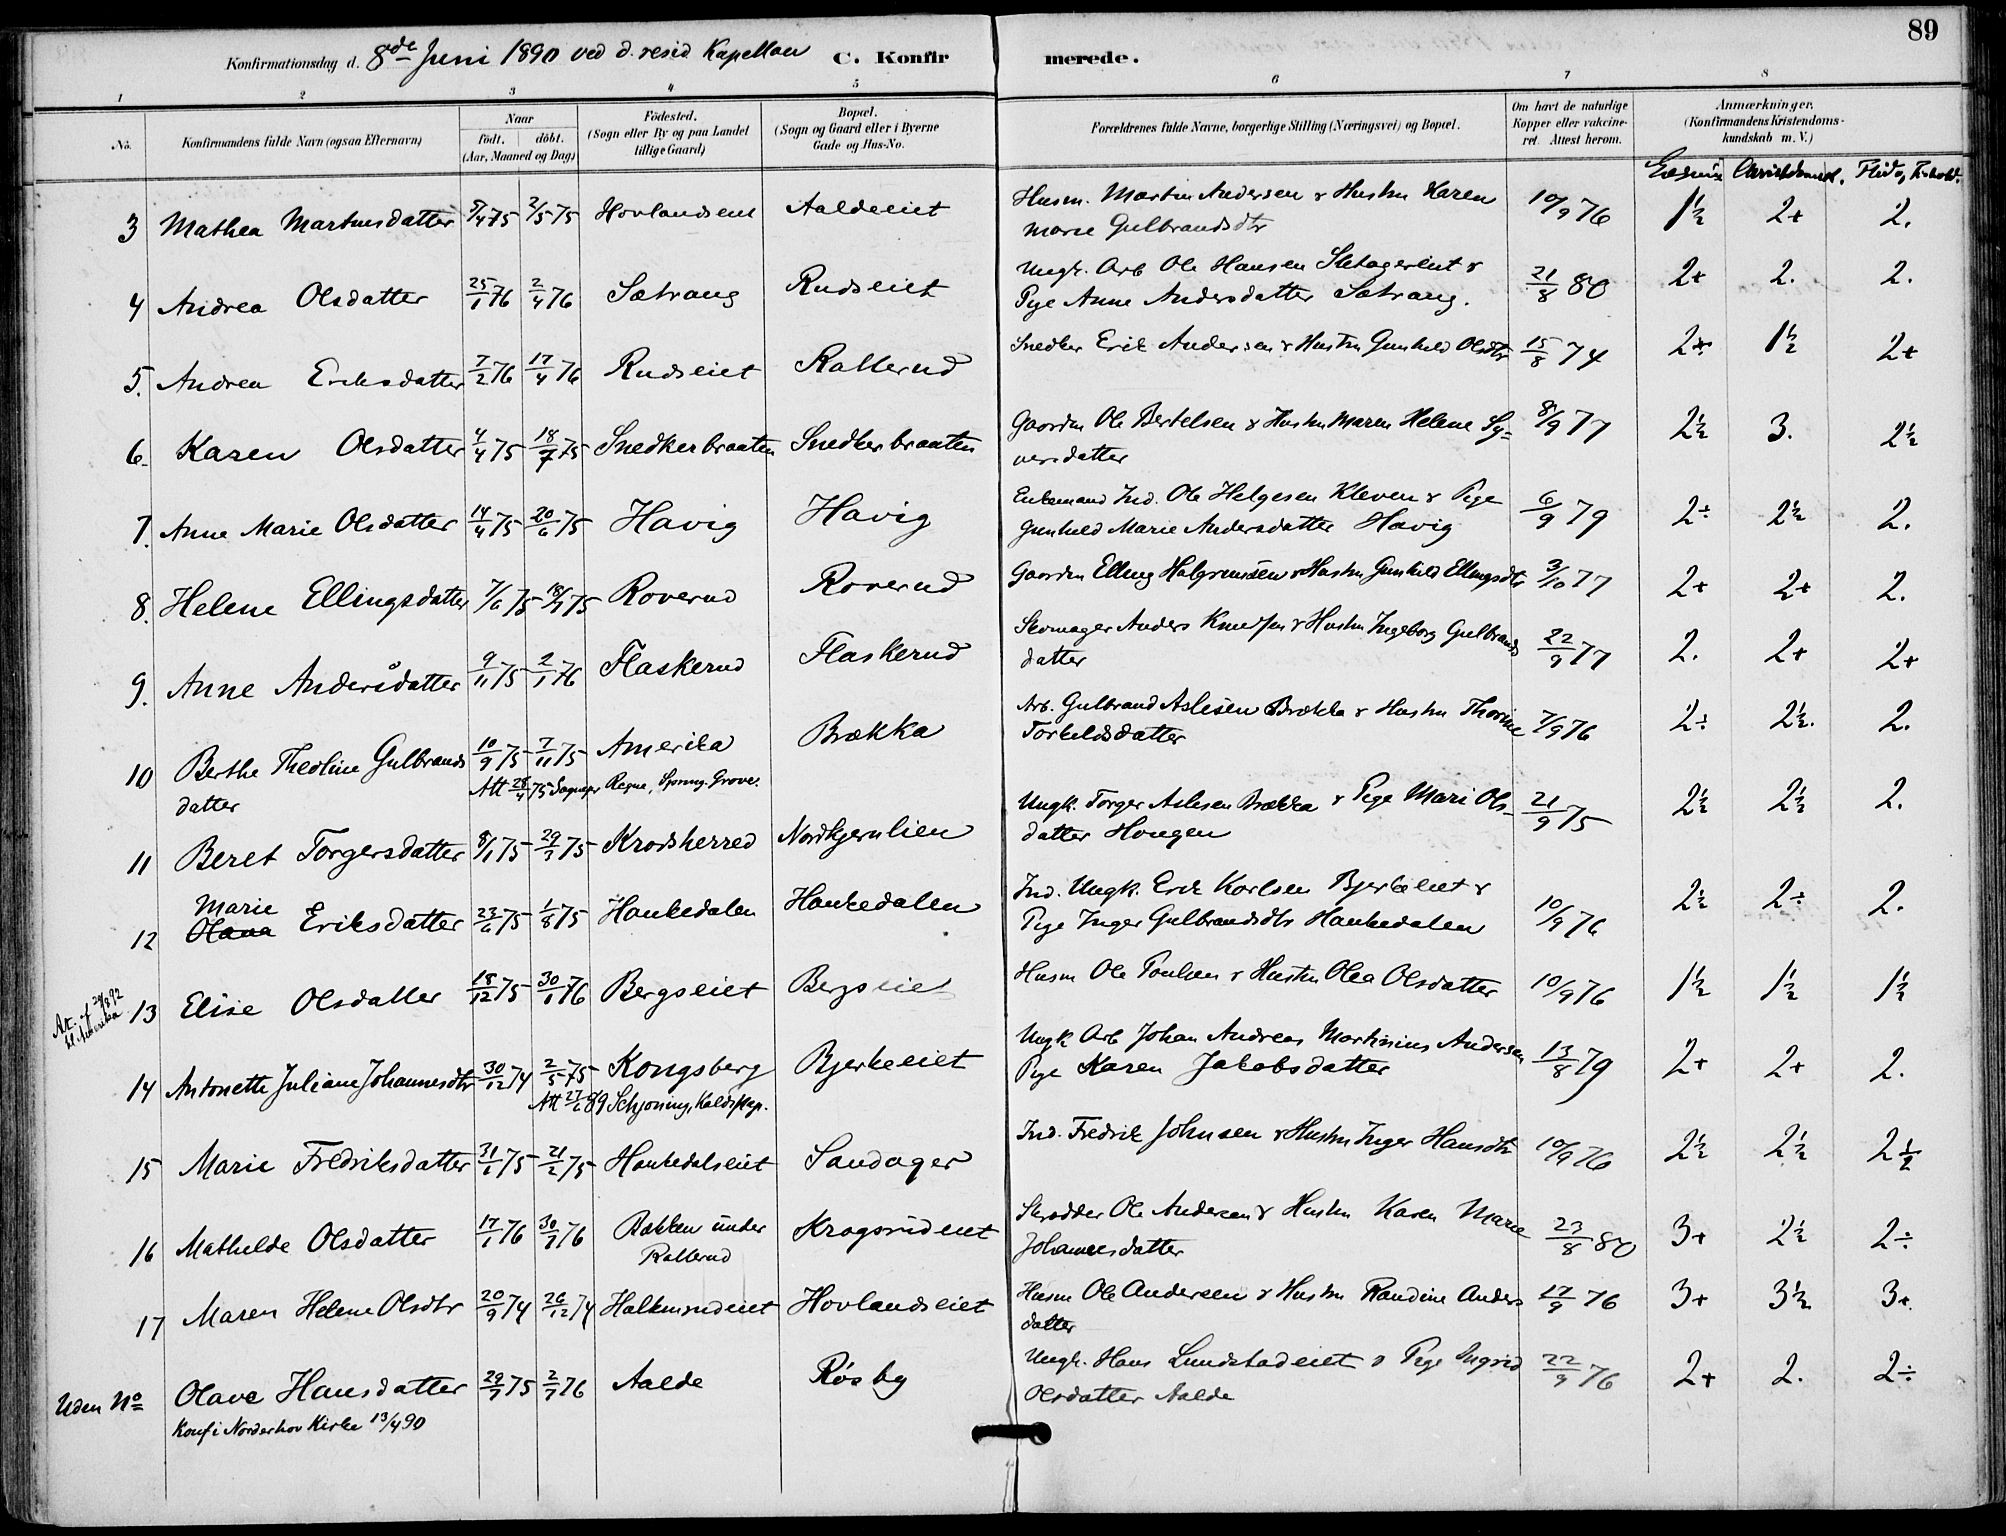 89
Konfirmationsdag d. 8de Juni 1890 ved d. resid Kapellan C. Konfirmerede.
1 2 3 4 5 6 7 8
No. Konfirmandens fulde Navn (ogsaa Efternavn) Naar födt. döbt. (Aar, Maaned og Dag) Födested. (Sogn eller By og paa Landet tillige Gaard) Bopæl. (Sogn og Gaard eller i Byerne Gade og Hus-No. Forældrenes fulde Navne, borgerlige Stilling (Næringsvei) og Bopæl. Om havt de naturlige Kopper eller vakcineret. Attest herom. Anmærkninger. (Konfirmandens Kristendomskundskab m. V.)
Christendomsk. Flid og Forhold.
3 Mathea Martinsdatter 8/4 75 2/5 75 Hovlandseie Aaldeeiet Husm. Martin Andersen & Hustru Karen 10/9 76 1½ 2+ 2.
Marie Gulbrandsdtr
4 Andrea Olsdatter 25/1 76 2/4 76 Sætrang Rudseiet Ungk. Arb Ole Hansen & 21/8 80 2+ 2. 2.
Pige Anne Andersdatter Sætrang.
5. Andrea Eriksdatter 7/2 76 17/4 76 Rudseiet Rallerud Snedker Erik Andersen & Hustru Gunhild Olsdtr 15/8 74 2+ 1½ 2+
6. Karen Olsdatter 4/4 75 18/7 75 Snedkerbraaten Snedkerbraaten Gaardm Ole Bertelsen & Hustru Maren Helene Sy- 8/9 77 2½ 3. 2½
versdatter
7. Anne Marie Olsdatter 14/4 75 20/6 75 Havig Havig Enkemand Ind. Ole Helgesen Kleven & Pige 6/9 79 2÷ 2½ 2.
Gunhild Marie Andersdatter Havig
8. Helene Ellingsdatter 7/6 75 18/7 75 Roverud Roverud Gaardm Elling Halgrimsen & Hustru Gunhild Ellingsdtr 3/10 77 2+ 2+ 2.
9. Anne Andersdatter 9/11 75 2/1 76 Flaskerud Flaskerud Skomager Anders Knudsen & Hustru Ingeborg Gulbrands 22/9 77 2. 2+ 2+
datter
10 Berthe Theoline Gulbrands 10/9 75 7/11 75 Amerika Brækka Arb. Gulbrand Aslesen Brækka & Hustru Thorine 7/9 76 2÷ 2½. 2.
datter Att 28/4 75 Sognepr Regne, Spring-Grove. Torkeldsdatter
11 Beret Torgersdatter 8/1 75 29/3 75 Krodsherred Nordkjernlien Ungk. Torger Aslesen Brækka & Pige Mari Ols- 21/9 75 2½ 2½ 2.
datter Hougen
12 Marie Olava Eriksdatter 23/6 75 1/8 75 Hankedalen Hankedalen Ind. Ungk. Erik Karlsen Bjerkeeiet & 10/9 76 2½ 2÷ 2.
Pige Inger Gulbrandsdtr Hankedalen
Att. af 20/8 92 til Amerika
13 Elise Olsdatter 18/12 75 30/1 76 Bergseiet Bergseiet Husm Ole Poulsen & Hustru Olea Olsdatter 10/9 76 1½ 1½ 1½
14 Antonette Juliane Johannesdtr 30/12 74 2/5 75 Kongsberg Bjerkeeiet Ungk Arb Johan Andreas Martinius Andersen 13/8 79 2+ 2+ 2.
Att 27/6 89 Schjöning, Kaldskap. Pige Karen Jakobsdatter
15 Marie Fredriksdatter 31/1 75 21/2 75 Hankedalseiet Sandager Ind. Fredrik Johnsen & Hustru Inger Hansdtr 10/9 76 2½ 2½ 2½
16 Mathilde Olsdatter 17/1 76 30/7 76 Bakken under Rallerud Kragsrudeiet Skrædder Ole Andersen & Hustru Karen Marie 23/8 80 3+ 2½ 2÷
Johannesdatter
17 Maren Helene Olsdtr 20/9 74 26/12 74 Halkinrudeiet Hovlandseiet Husm Ole Andersen & Hustru Randine Anders 17/9 76 3+ 3½ 3+
datter
Uden No Olave Hansdatter 29/7 75 2/7 76 Aalde Røsby Ungk. Hans Lundstadeiet & Pige Ingrid 22/9 76 2+ 2. 2÷
Konf i Norderhov Kirke 13/4 90 Olsdatter Aalde